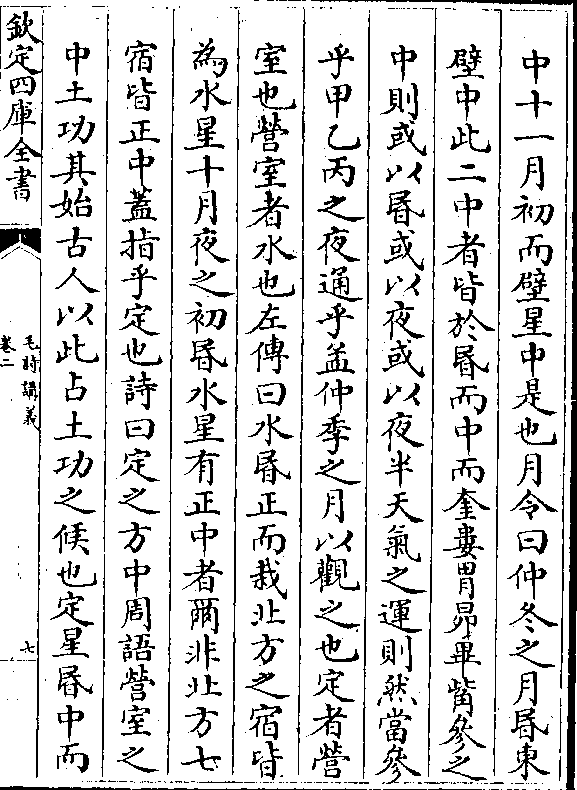 中十一月初而壁星中是也月令曰仲冬之月昬東
壁中此二中者皆於昬而中而奎婁胃昴畢觜參之
中則或以昬或以夜或以夜半天氣之運則然當參
乎甲乙丙之夜通乎孟仲季之月以觀之也定者營
室也營室者水也左傳曰水昬正而栽北方之宿皆
為水星十月夜之初昬水星有正中者爾非北方七
宿皆正中蓋指乎定也詩曰定之方中周語營室之
中土功其始古人以此占土功之候也定星昬中而
欽定四庫全書
毛詩講義
卷二
七